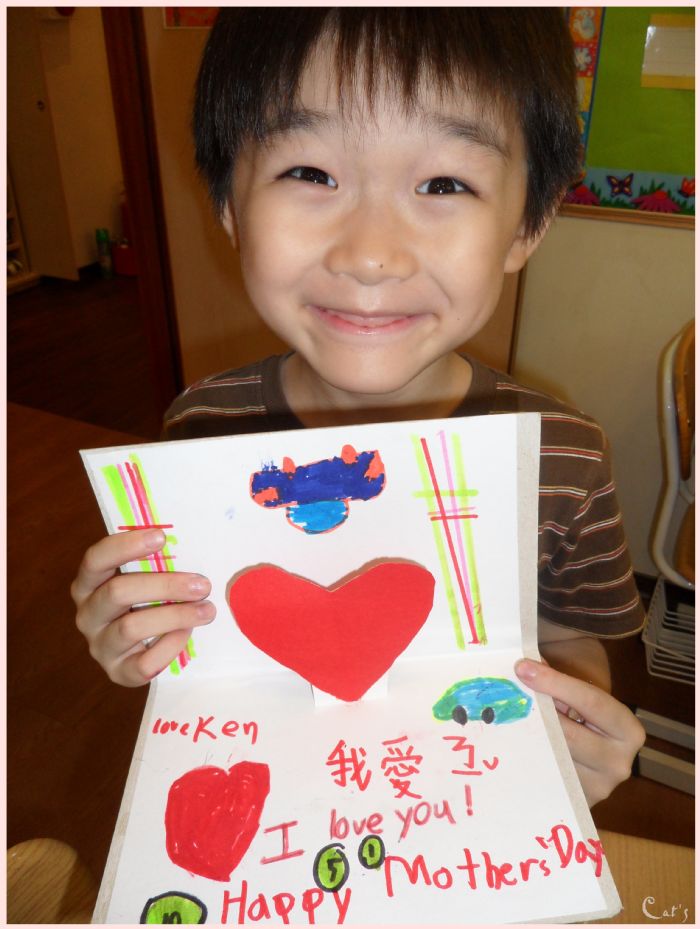 love Ken
我愛ㄋㄧˇ
I love you!
Happy Mothers' Day
Cat's